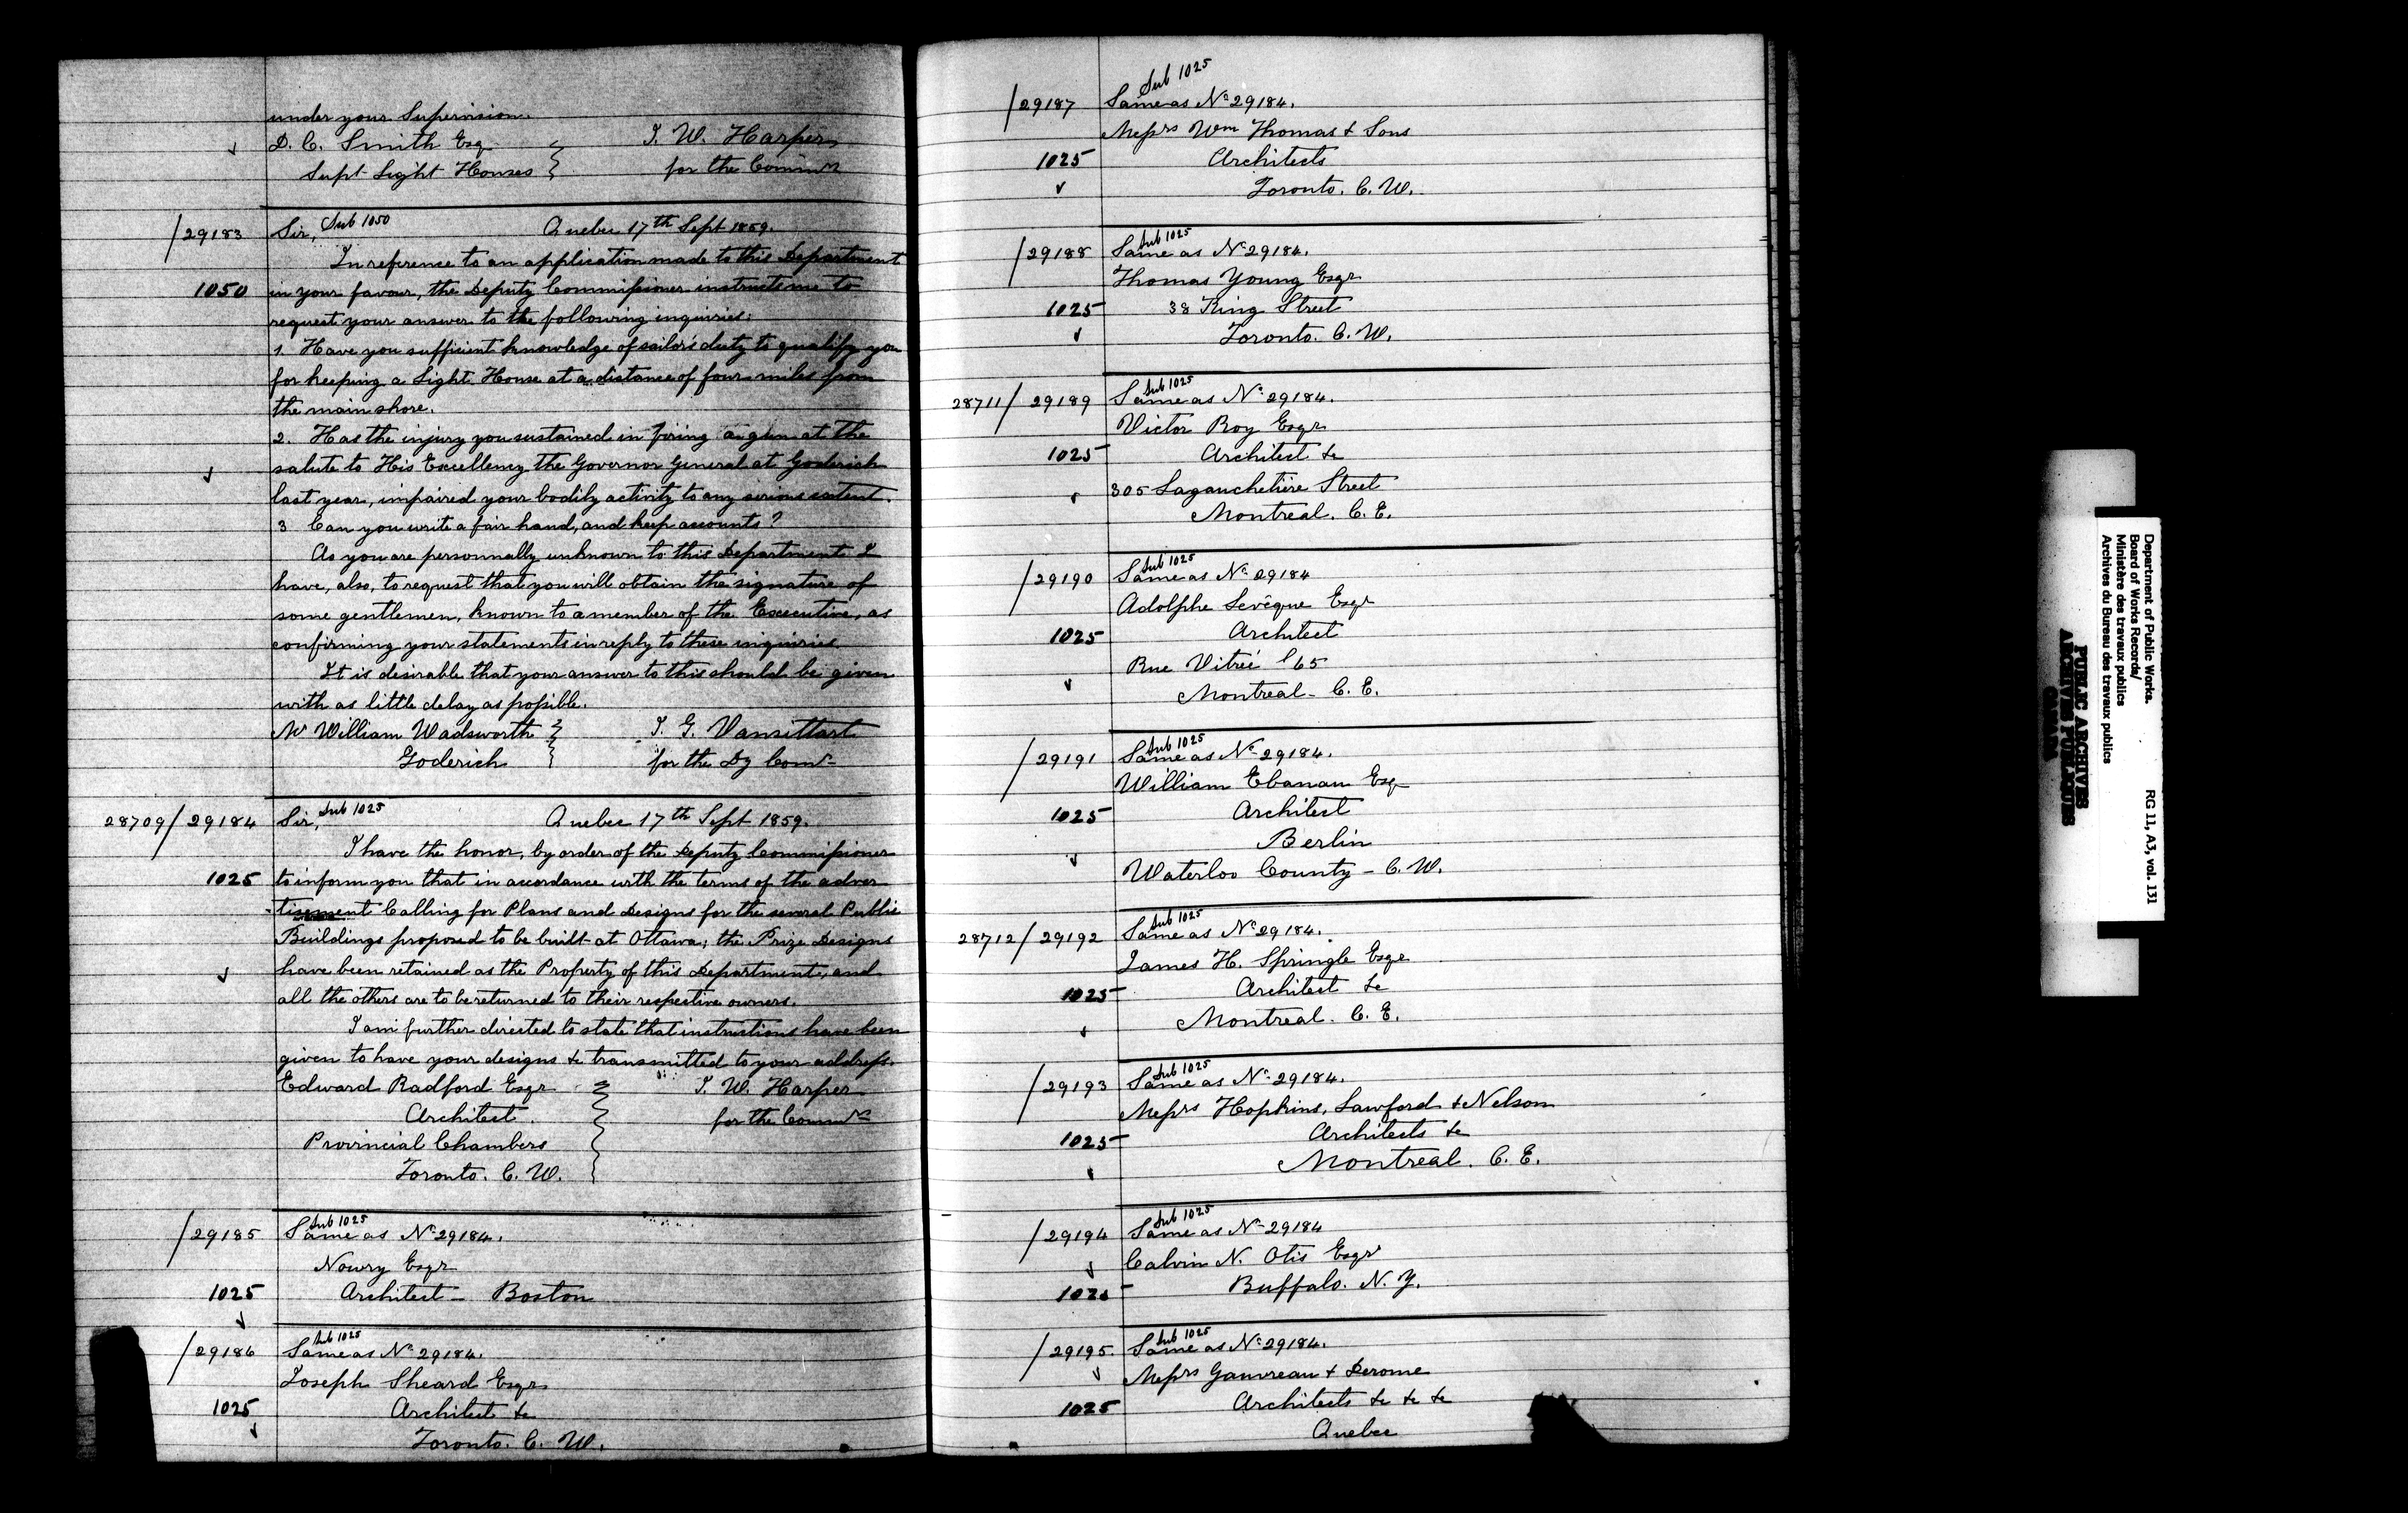 under your Supervision.
D. C. Smith Esq T. W. Harper
Supt Light Houses for the Commr
/29183 Sir, Sub 1050 Quebec 17th Sept 1859.
In reference to an application made to this Department
1050 in your favour, the Deputy Commissioner instructs me to
request your answer to the following inquiries:
1. Have you sufficient knowledge of sailor's duty to qualify you
for keeping a Light House at a distance of four miles from
the main shore.
2. Has the injury you sustained in firing a gun at the
salute to His Excellency the Governor General at Goderich
last year, impaired your bodily activity to any serious extent.
3 Can you write a fair hand, and keep accounts?
As you are personnally unknown to this Department I
have, also, to request that you will obtain the signature of
some gentlemen, known to a member of the Executive, as
confirming your statements in reply to these inquiries.
It is desirable that your answer to this should be given
with as little delay as possible.
Mr William Wadsworth T. G. Vansittart
Goderich for the Dy Comr
28709/29184 Sir, Sub 1025 Quebec 17th Sept 1859.
I have the honor, by order of the Deputy Commissioner
1025 to inform you that in accordance with the terms of the adver
-tisement Calling for Plans and Designs for the several Public
Buildings proposed to be built at Ottawa; the Prize Designs
have been retained as the Property of this Department, and
all the others are to be returned to their respective owners.
I am further directed to state that instructions have been
given to have your designs &c transmitted to your address.
Edward Radford Esqr T. W. Harper
Architect. for the Commr
Provincial Chambers
Toronto. C. W.
Sub 1025
/29185 Same as No 29184.
Nowry Esqr
1025 Architect - Boston
Sub 1025
/29186 Same as No 29184.
Joseph Sheard Esqr
1025 Architect &c
Toronto. C. W.
Sub 1025
/29187 Same as No 29184.
Messrs Wm Thomas & Sons
1025 Architects
Toronto. C. W.
Sub 1025
/29188 Same as No 29184.
Thomas Young Esqr
1025 38 King Street
Toronto. C. W.
Sub 1025
28711/29189 Same as No 29184.
Victor Roy Esqr
1025 Architect &c
305 Lagauchetière Street
Montreal. C. E.
Sub 1025
/29190 Same as No 29184
Adolphe Levêque Esqr
1025 Architect
Rue Vitreé 65
Montreal - C. E.
Sub 1025
/29191 Same as No 29184.
William Ebanau Esq
1025 Architect
Berlin
Waterloo County - C. W.
Sub 1025
28712/29192 Same as No 29184.
James H. Springle Esqr
1025 Architect &c
Montreal. C. E.
Sub 1025
/29193 Same as No 29184.
Messrs Hopkins, Lawford & Nelson
1025 Architects &c
Montreal. C. E.
Sub 1025
/29194 Same as No 29184
Calvin N. Otis Esqr
1025 Buffalo. N. Y.
Sub 1025
/29195. Same as No 29184.
Messrs Gauvreau & Derome
1025 Architects &c &c &c
Quebec
Department of Public Works. RG 11, A3, vol. 131
Board of Works Records/
Ministère des travaux publics
Archives du Bureau des travaux publics
PUBLIC ARCHIVES
ARCHIVES PUBLIQUES
CANADA